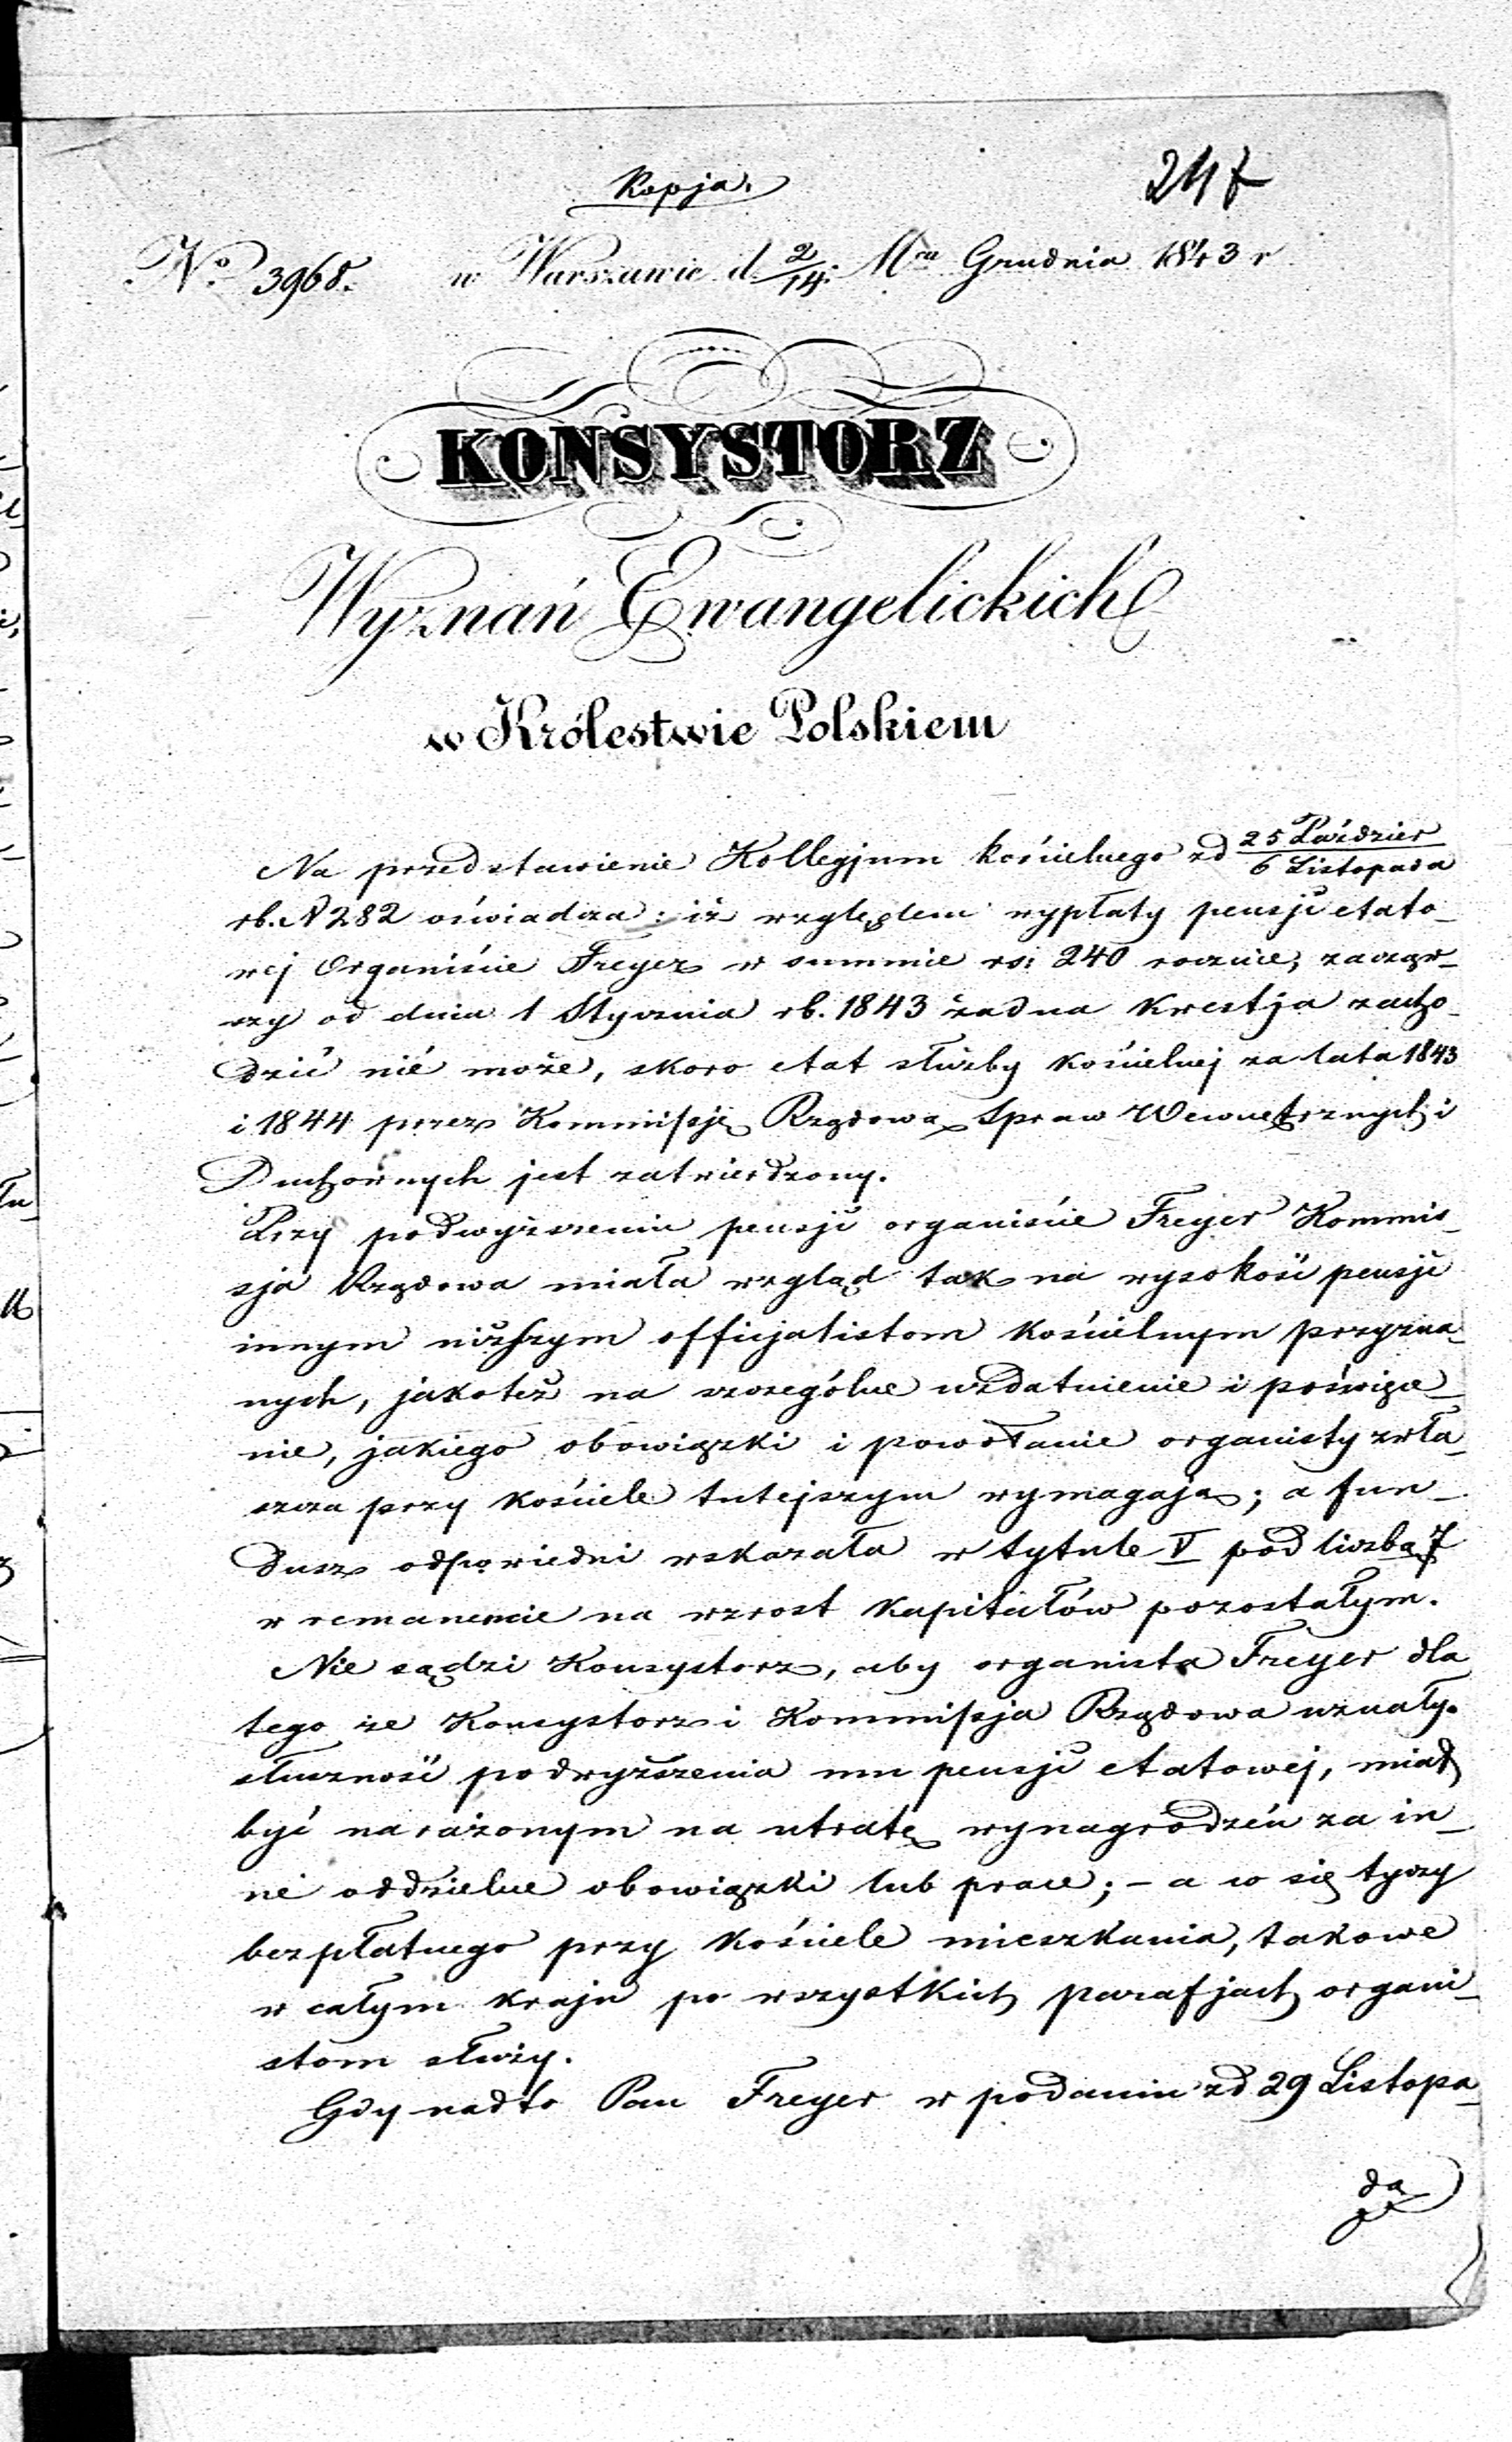 Kopja.
247
No. 3968. w Warszawie d. 2/14. Mca Grudnia 1843 r
KONSYSTORZ
Wyznań Ewangelickich
w Królestwie Polskiem
Na przedstawienie Kollegjum kościelnego zd 25 Paździer / 6 Listopada
rb. N 282 oświadcza: iż względem wypłaty pensji etato_
wej Organiście Freyer w summie rs: 240 rocznie, zacząw_
szy od dnia 1 Stycznia rb. 1843 żadna kwestja zacho_
dzić nié może, skoro etat służby kościelnej za lata 1843
i 1844 przez Kommissję Rządową Spraw Wewnętrznych i
Duchownych jest zatwierdzony.
Przy podwyższeniu pensji organiście Freyer Kommis_
sja Rządowa miała wzgląd tak na wysokość pensji
innym niższym officjalistom kościelnym przyzna_
nych, jakoteż na szczególne uzdatnienie i poświęce_
nie, jakiego obowiązki i powołanie organisty zwła_
szcza przy kościele tutejszym wymagają; a fun_
dusz odpowiedni wskazała w tytule V pod liczbą 7
w remanencie na wzrost kapitałów pozostałym.
Nie sądzi Konsystorz, aby organista Freyer dla
tego że Konsystorz i Kommissja Rządowa uznały
słuszność podwyższenia mu pensji etatowej, miał
być narażonym na utratę wynagrodzeń za in_
ne oddzielne obowiązki lub prace; – a co się tyczy
bezpłatnego przy kościele mieszkania, takowe
w całym kraju po wszystkich parafjach organi_
stom służy.
Gdy nadto Pan Freyer w podaniu zd 29 Listopa_
da